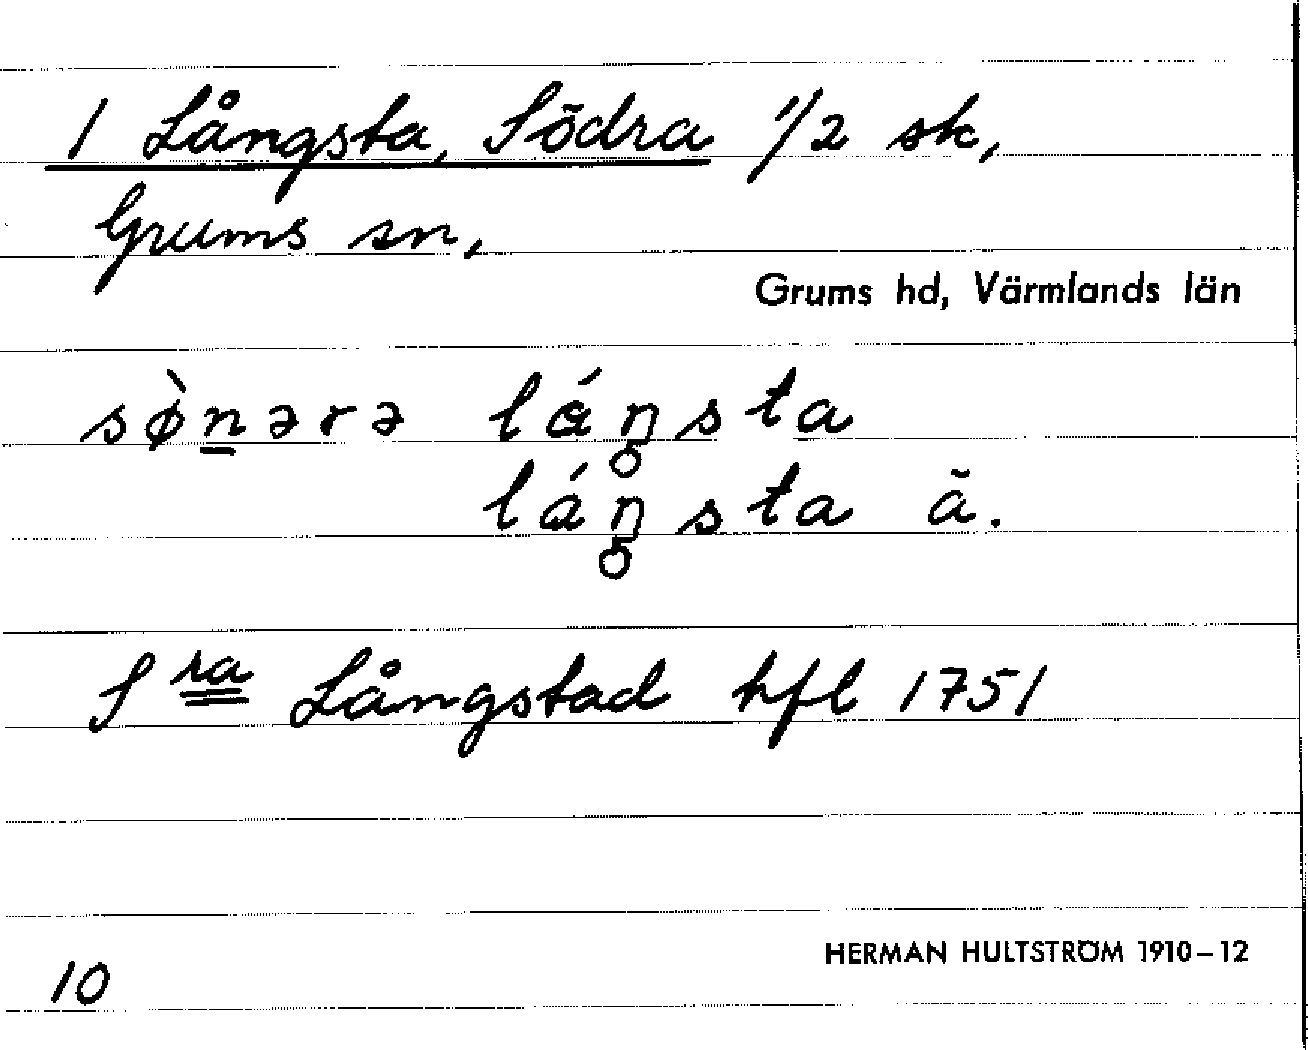 1 Långsta, Södra 1/2 sk,
Grums sn,
Grums hd, Värmlands län
sø̀n̲ərə láŋ̥sta
láŋ̥sta ă.
S ra Långstad hfl 1751
HERMAN HULTSTRÖM 1910–12
10